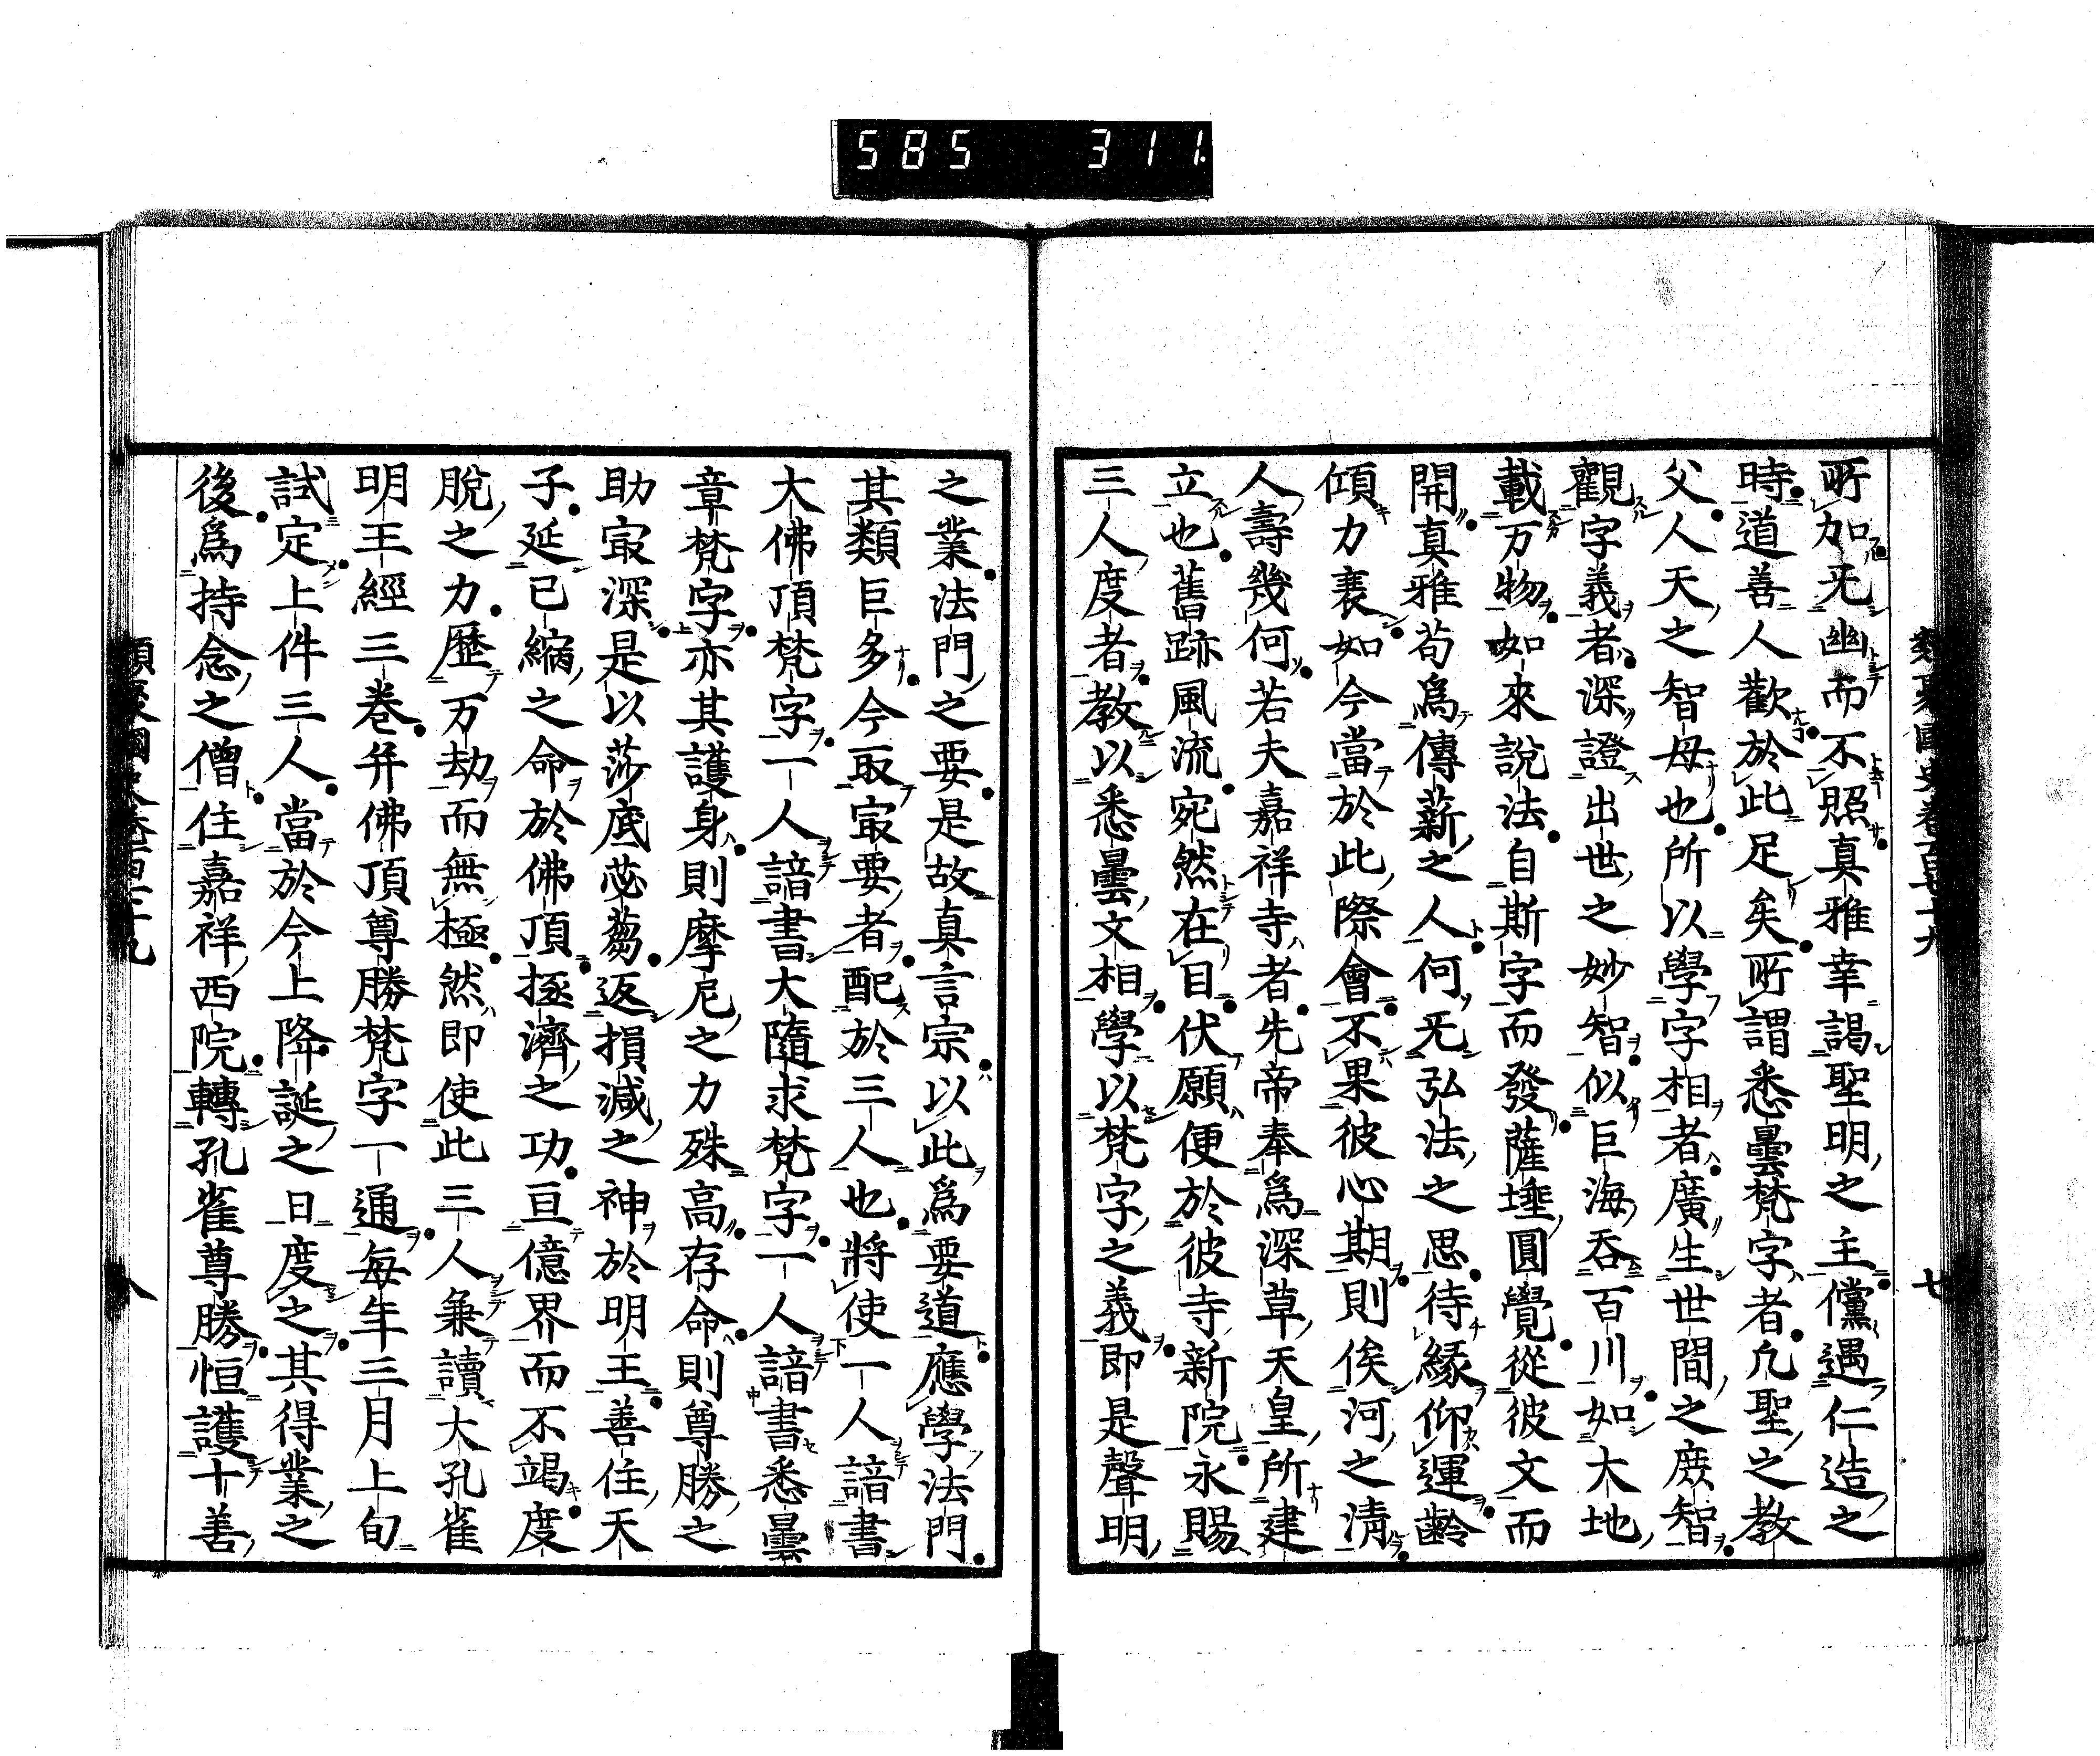 585 311
所加无幽而不照真雅幸謁聖明之主儻遇仁造之
時道善人歡於此足矣所謂悉曇梵字者凢聖之教
父人天之智母也所以學字相者廣生世間之庶智
觀字義者深證出世之妙智似巨海吞百川如大地
載万物如來說法自斯字而發薩埵圓覺從彼文而
開真雅苟為傳薪之人何无弘法之思待緣仰運齡
傾力衰如今當於此際會不果彼心期則俟河之清
人壽幾何若夫嘉祥寺者先帝奉為深草天皇所建
立也舊跡風流宛然在目伏願便於彼寺新院永賜
三人度者教以悉曇文相學以梵字之義即是聲明
之業法門之要是故真言宗以此為要道應學法門
其類巨多今取㝡要者配於三人也將使一人諳書
大佛頂梵字一人諳書大隨求梵字一人諳書悉曇
章梵字亦其護身則摩尼之力殊高存命則尊勝之
助㝡深是以莎底苾蒭返損減之神於明王善住天
子延已縮之命於佛頂拯濟之功亘億界而不竭度
脫之力歷万劫而無極然即使此三人兼讀大孔雀
明王經三卷并佛頂尊勝梵字一通每年三月上旬
試定上件三人當於今上降誕之日度之其得業之
後為持念之僧住嘉祥西院轉孔雀尊勝恒護十善